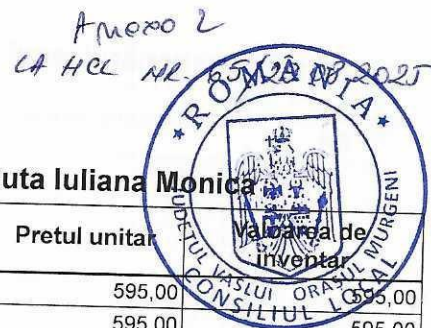 Anexa 2
LA HCL NR. 85/28.08.2025
ROMÂNIA
JUDEȚUL VASLUI ORAȘUL MURGENI
CONSILIUL LOCAL
uta Iuliana Monica
Pretul unitar Valoarea de inventar
595,00 595,00
595,00 595,00